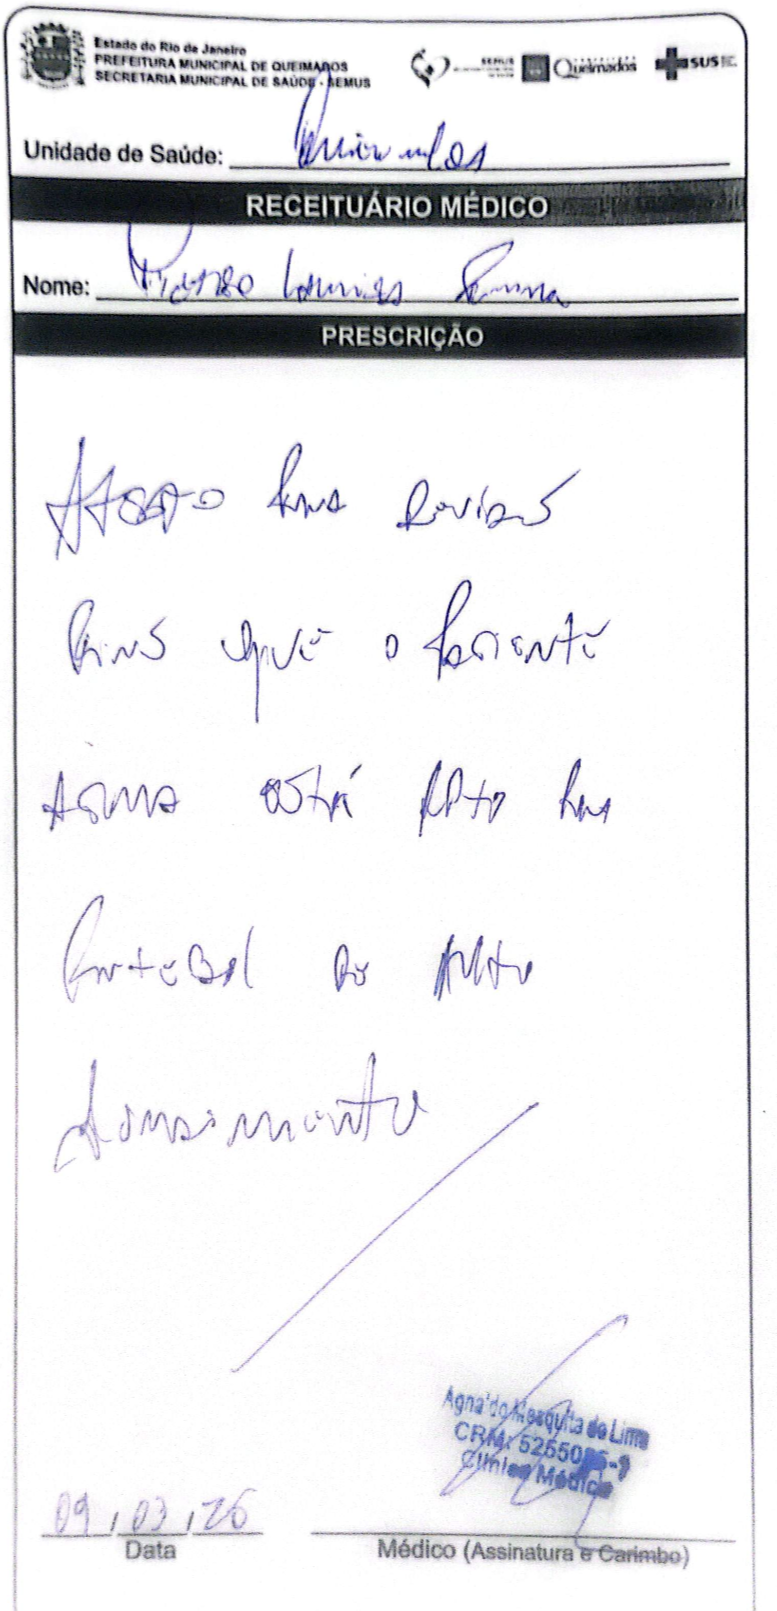 Estado do Rio de Janeiro
PREFEITURA MUNICIPAL DE QUEIMADOS
SECRETARIA MUNICIPAL DE SAÚDE - SEMUS
SEMUS
Queimados
SUS
Unidade de Saúde:
RECEITUÁRIO MÉDICO
Nome:
PRESCRIÇÃO
Atesto para devidos
fins que o paciente
acima está apto para
de alto
Data
09/03/26
Agnaldo Mesquita de Lima
CRM:
Clínica Médica
Médico (Assinatura e Carimbo)